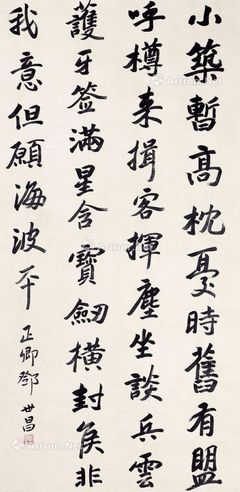 小築暫高枕憂時舊有盟
呼樽来揖客揮塵坐談兵雲
護牙签滿星含寶劒橫封矦非
我意但願海波平 正卿鄧世昌